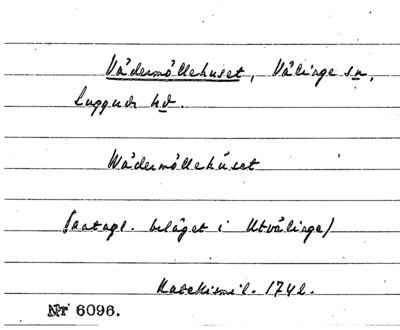 Vådermöllehuset, Välinge sn,
Luggude hd.
Wådermöllehuset
(antagl. beläget i Utvälinge)
Katekismil. 1742.
Nr 6096.